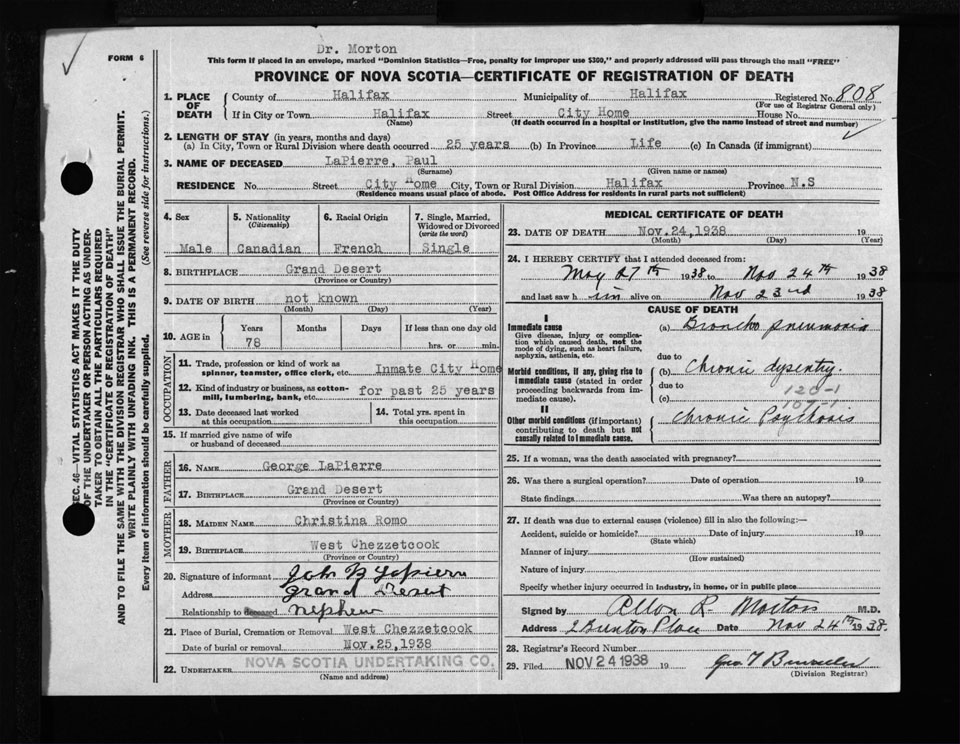 Dr. Morton
FORM 6
This form if placed in an envelope, marked "Dominion Statistics—Free, penalty for improper use $300," and properly addressed will pass through the mail "FREE"
PROVINCE OF NOVA SCOTIA—CERTIFICATE OF REGISTRATION OF DEATH
1. PLACE OF DEATH
County of Halifax Municipality of Halifax Registered No. 808
(For use of Registrar General only)
If in City or Town Halifax Street City Home House No.
(Name) (If death occurred in a hospital or institution, give the name instead of street and number)
2. LENGTH OF STAY (in years, months and days)
(a) In City, Town or Rural Division where death occurred 25 years (b) In Province Life (c) In Canada (if immigrant)
3. NAME OF DECEASED LaPierre, Paul
(Surname) (Given name or names)
RESIDENCE No. Street City Home City, Town or Rural Division Halifax Province N.S
(Residence means usual place of abode. Post Office Address for residents in rural parts not sufficient)
4. Sex
Male
5. Nationality
(Citizenship)
Canadian
6. Racial Origin
French
7. Single, Married, Widowed or Divorced
(write the word)
Single
8. BIRTHPLACE Grand Desert
(Province or Country)
9. DATE OF BIRTH not known
(Month) (Day) (Year)
10. AGE in
Years Months Days If less than one day old
78 hrs. or min.
OCCUPATION
11. Trade, profession or kind of work as
spinner, teamster, office clerk, etc. Inmate City Home
12. Kind of industry or business, as cotton-
mill, lumbering, bank, etc. for past 25 years
13. Date deceased last worked
at this occupation
14. Total yrs. spent in
this occupation
15. If married give name of wife
or husband of deceased
FATHER
16. NAME George LaPierre
17. BIRTHPLACE Grand Desert
(Province or Country)
MOTHER
18. MAIDEN NAME Christina Romo
19. BIRTHPLACE West Chezzetcook
(Province or Country)
20. Signature of informant John B LaPierre
Address Grand Desert
Relationship to deceased nephew
21. Place of Burial, Cremation or Removal West Chezzetcook
Date of burial or removal Nov.25,1938
22. UNDERTAKER NOVA SCOTIA UNDERTAKING CO.
(Name and address)
MEDICAL CERTIFICATE OF DEATH
23. DATE OF DEATH Nov.24,1938 19
(Month) (Day) (Year)
24. I HEREBY CERTIFY that I attended deceased from:
May 27th 1938 to Nov 24th 1938
and last saw him alive on Nov 23rd 1938
CAUSE OF DEATH
I
Immediate cause
Give disease, injury or complica-
tion which caused death, not the
mode of dying, such as heart failure,
asphyxia, asthenia, etc.
(a) Broncho pneumonia
due to
Morbid conditions, if any, giving rise to
immediate cause (stated in order
proceeding backwards from im-
mediate cause).
(b) Chronic dysentry.
due to
(c)
120-1
107-1
II
Other morbid conditions (if important)
contributing to death but not
causally related to immediate cause.
Chronic Psychosis
25. If a woman, was the death associated with pregnancy?
26. Was there a surgical operation? Date of operation 19
State findings Was there an autopsy?
27. If death was due to external causes (violence) fill in also the following:—
Accident, suicide or homicide? Date of injury 19
(State which)
Manner of injury
(How sustained)
Nature of injury
Specify whether injury occurred in industry, in home, or in public place
Signed by Allan R. Morton M.D.
Address 2 Brenton Place Date Nov 24th 1938.
28. Registrar's Record Number
29. Filed NOV 24 1938 19
(Division Registrar)
SEC. 46—VITAL STATISTICS ACT MAKES IT THE DUTY
OF THE UNDERTAKER OR PERSON ACTING AS UNDER-
TAKER TO OBTAIN ALL THE PARTICULARS REQUIRED
IN THE "CERTIFICATE OF REGISTRATION OF DEATH"
AND TO FILE THE SAME WITH THE DIVISION REGISTRAR WHO SHALL ISSUE THE BURIAL PERMIT.
WRITE PLAINLY WITH UNFADING INK. THIS IS A PERMANENT RECORD.
Every item of information should be carefully supplied. (See reverse side for instructions.)